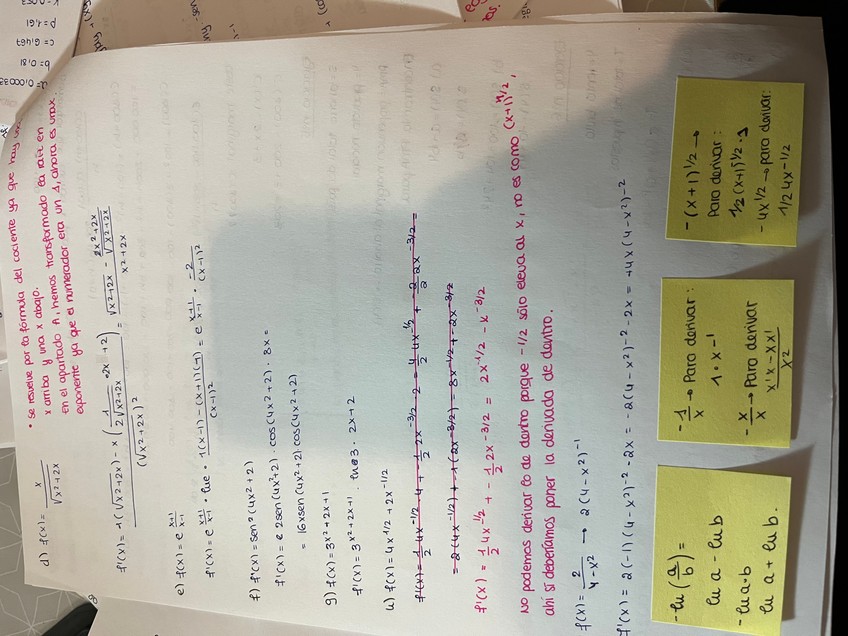 • Se resuelve por la fórmula del cociente ya que hay una
x arriba y una x abajo.
d) f(x) = x / √(x²+2x)
en el apartado A, hemos transformado la raíz en
exponente ya que el numerador era un 1, ahora es una x.
f'(x) = 1(√(x²+2x)) - x (1/(2√(x²+2x)) · 2x + 2) / (√(x²+2x))² = (√(x²+2x) - (2x²+2x)/√(x²+2x)) / (x²+2x)
e) f(x) = e^((x+1)/(x-1))
f'(x) = e^((x+1)/(x-1)) · lne · (1(x-1) - (x+1)(1)) / (x-1)² = e^((x+1)/(x-1)) · -2/(x-1)²
f) f'(x) = sen²(4x²+2)
f'(x) = 2sen(4x²+2) · cos(4x²+2) · 8x =
= 16xsen(4x²+2) · cos(4x²+2)
g) f(x) = 3^(x²+2x+1)
f'(x) = 3^(x²+2x+1) · ln3 · 2x+2
f(x) = 4x^(1/2) + 2x^(-1/2)
= 2(4x^(-1/2)) + -1(2x^(-3/2)) = 8x^(-1/2) + -2x^(-3/2)
f'(x) = 1/2 4x^(-1/2) + -1/2 2x^(-3/2) = 2x^(-1/2) - x^(-3/2)
No podemos derivar lo de dentro porque -1/2 sólo eleva al x, no es como (x+1)^(1/2),
ahí sí deberíamos poner la derivada de dentro.
f(x) = 2/(4-x²) → 2(4-x²)^(-1)
f'(x) = 2(-1)(4-x²)^(-2) · -2x = -2(4-x²)^(-2) · -2x = +4x(4-x²)^(-2)
- ln(a/b) =
ln a - ln b
- ln a·b
ln a + ln b.
- 1/x → Para derivar:
1·x^(-1)
- x/x → Para derivar
(x'x - xx') / x²
- (x+1)^(1/2) →
Para derivar:
1/2 (x+1)^(1/2) · 1
- 4x^(1/2) → para derivar:
1/2 4x^(-1/2)
c = 6,467
p = 1,61
b = 0,81